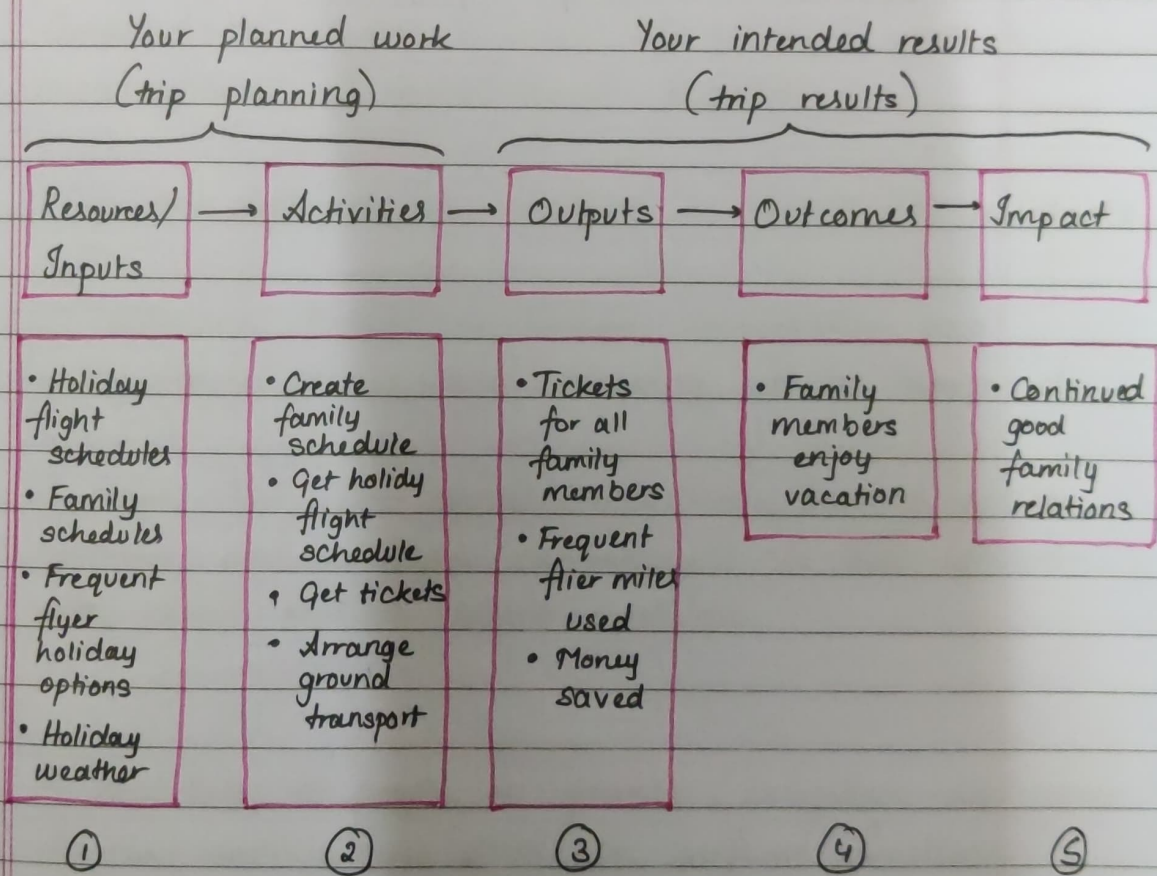 Your planned work
(trip planning)
Your intended results
(trip results)
Resources/
Inputs
Activities
Outputs
Outcomes
Impact
• Holiday
flight
schedules
• Family
schedules
• Frequent
flyer
holiday
options
• Holiday
weather
• Create
family
schedule
• Get holidy
flight
schedule
• Get tickets
• Arrange
ground
transport
• Tickets
for all
family
members
• Frequent
flier miles
used
• Money
saved
• Family
members
enjoy
vacation
• Continued
good
family
relations
1
2
3
4
5